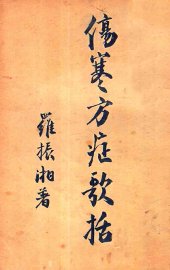 傷寒方症歌括
羅振湘著